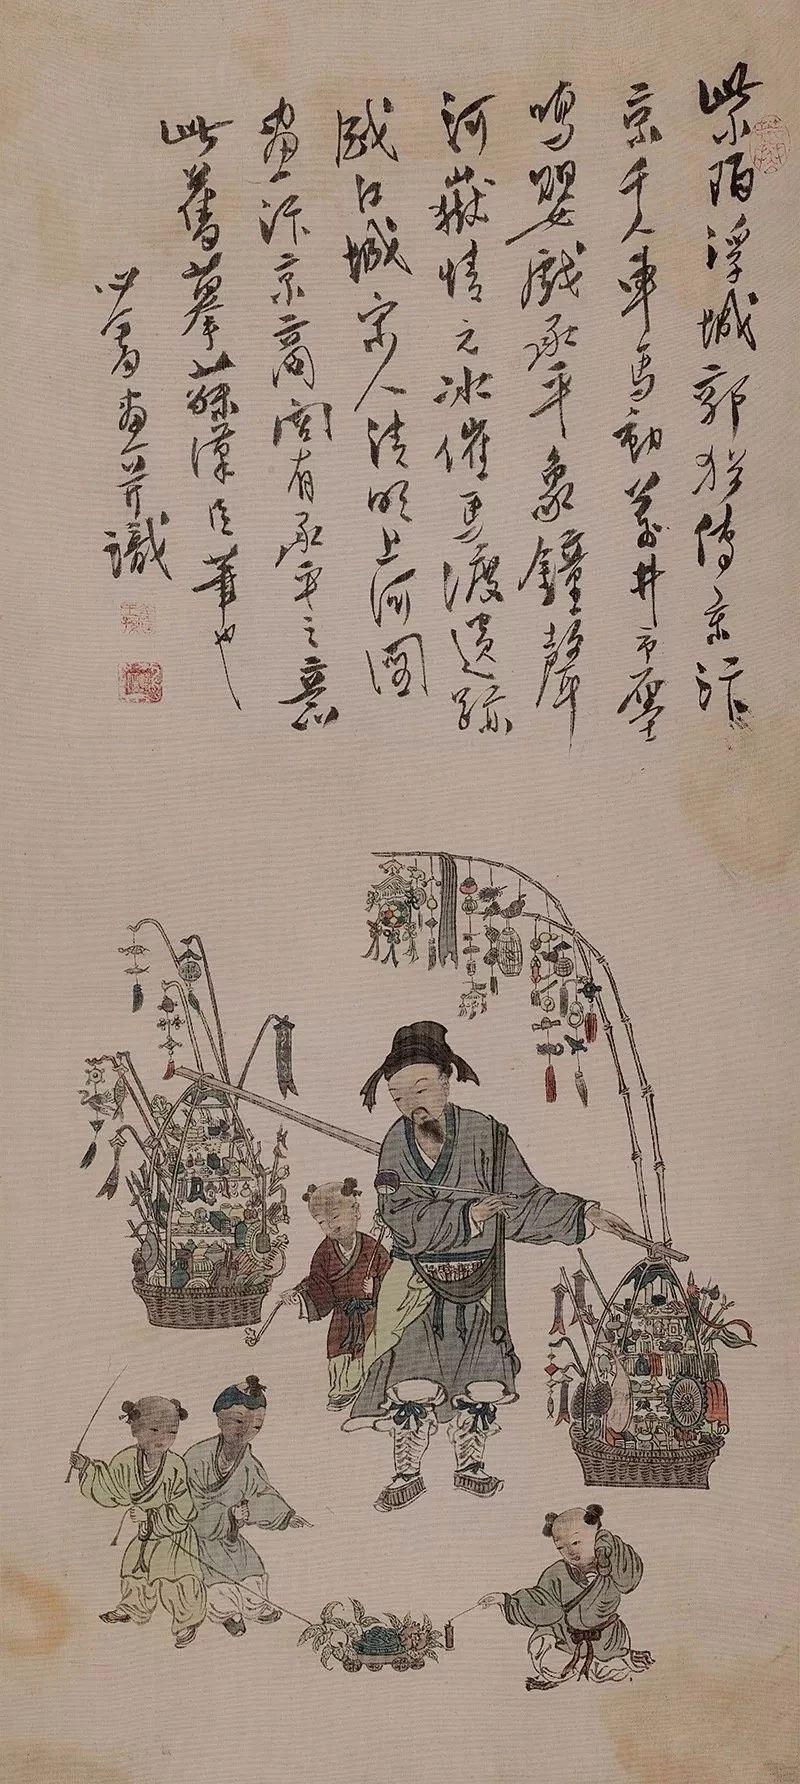 紫陌浮城郭猶傳宋汴
京千人車馬動萬井市廛
鳴嬰戲承平象鐘聲
河嶽情元冰催馬渡遺跡
感江城宋人清明上河圖
畫汴京商閭有承平之意
此舊摹蘇漢臣筆也
心畬畫并識